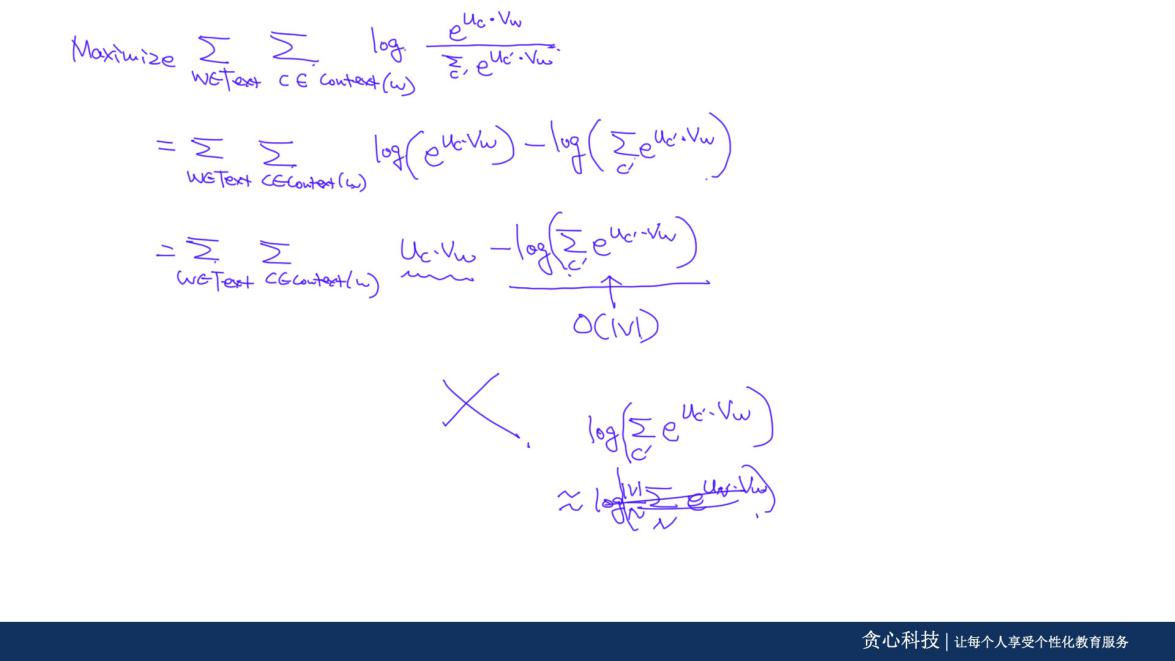 Maximize Σ_{w∈Text} Σ_{c∈Context(w)} log e^{u_c·v_w} / Σ_{c'} e^{u_{c'}·v_w}
= Σ_{w∈Text} Σ_{c∈Context(w)} log(e^{u_c·v_w}) − log(Σ_{c'} e^{u_{c'}·v_w})
= Σ_{w∈Text} Σ_{c∈Context(w)} u_c·v_w − log(Σ_{c'} e^{u_{c'}·v_w})
O(|V|)
log(Σ_{c'} e^{u_{c'}·v_w})
≈ log(|V|/N Σ_N e^{u_N·v_w})
贪心科技 | 让每个人享受个性化教育服务